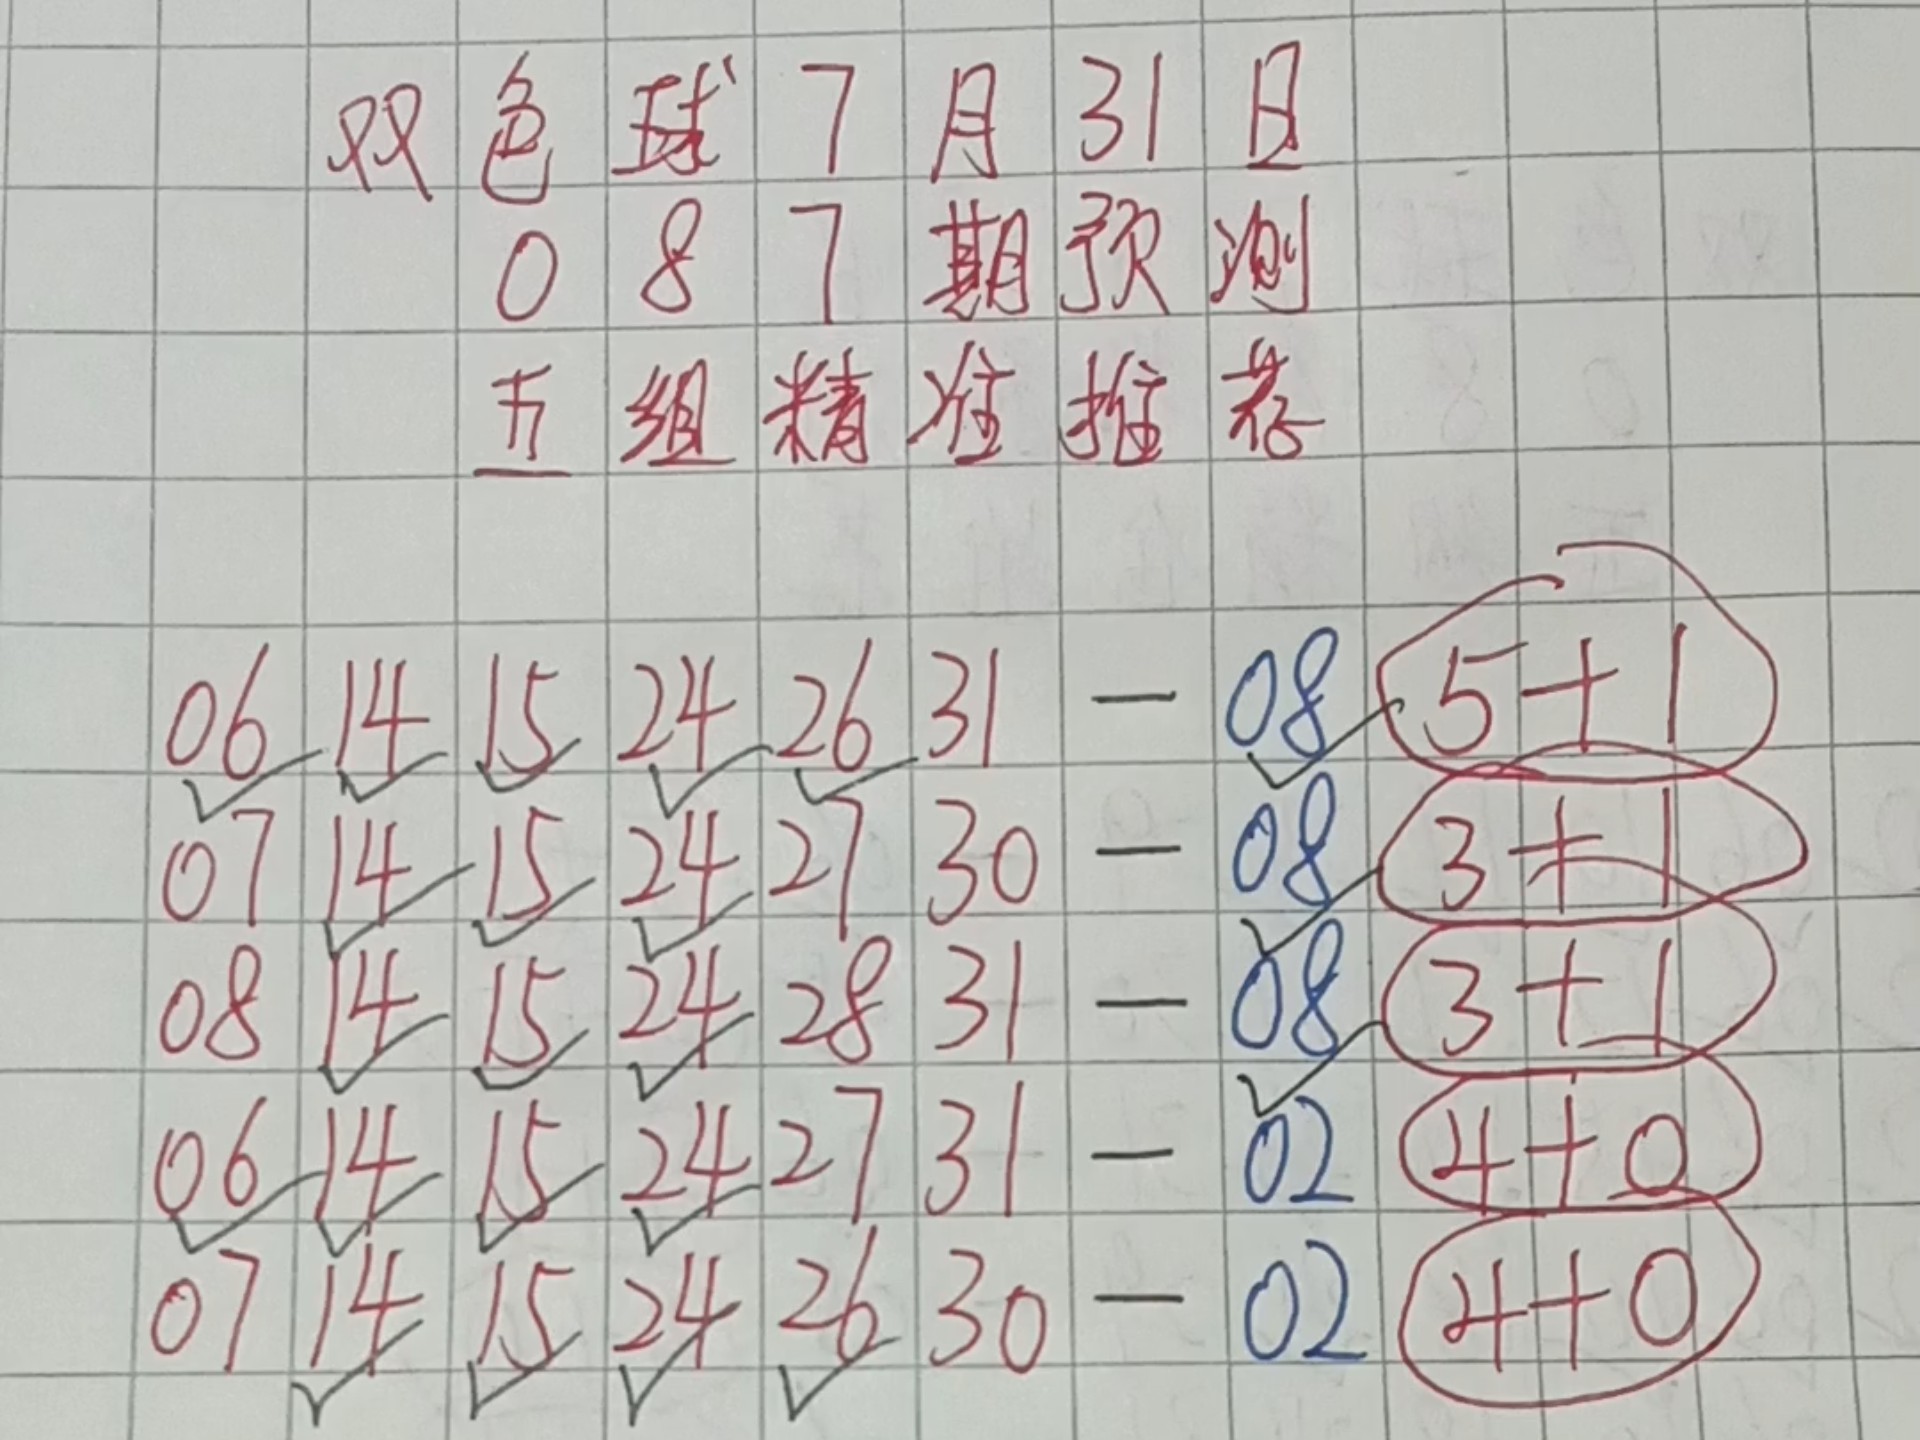 双色球7月31日
087期预测
五组精准推荐
06 14 15 24 26 31 — 08 5+1
07 14 15 24 27 30 — 08 3+1
08 14 15 24 28 31 — 08 3+1
06 14 15 24 27 31 — 02 4+0
07 14 15 24 26 30 — 02 4+0